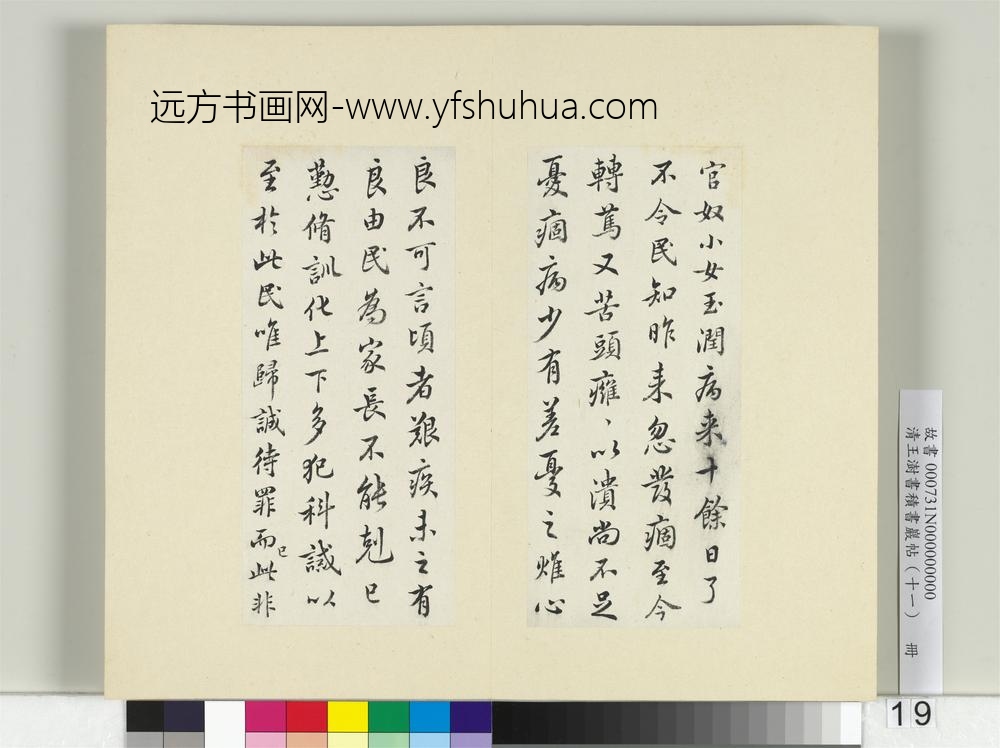 远方书画网-www.yfshuhua.com
官奴小女玉潤病来十餘日了
不令民知昨来忽發痼至今
轉篤又苦頭癰、以潰尚不足
憂痼病少有差憂之燋心
良不可言頃者艱疾未之有
良由民為家長不能剋己
懃脩訓化上下多犯科誡以
至於此民唯歸誠待罪而已此非
故書 000731N000000000
清王澍書積書巖帖(十一) 冊
19